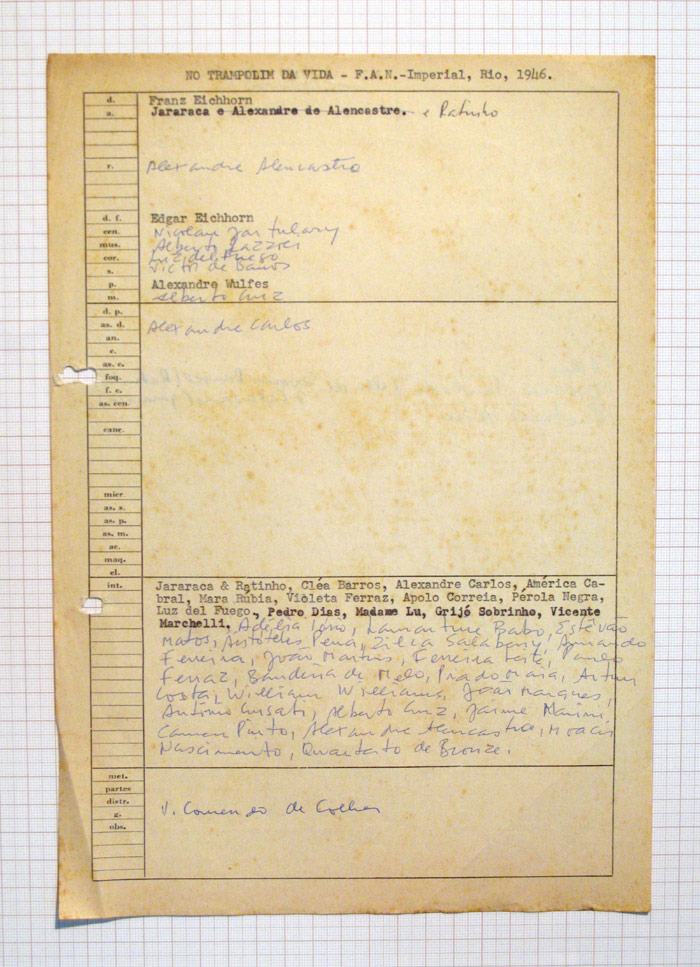 NO TRAMPOLIM DA VIDA - F.A.N.-Imperial, Rio, 1946.
d. Franz Eichhorn
a. Jararaca e Alexandre de Alencastre. e Ratinho
r. Alexandre Alencastro
d. f. Edgar Eichhorn
cen. Nicolau
mus. Alberto Lazzoli
cor. Luz del Fuego
s. Victor de Barros
p. Alexandre Wulfes
m. Alberto Cruz
d. p.
as. d. Alexandre Carlos
an.
c.
as. c.
foq.
f. c.
as. cen.
canç.
micr
as. s.
as. p.
as. m.
ac.
maq.
el.
int. Jararaca & Ratinho, Cléa Barros, Alexandre Carlos, América Ca-
bral, Mara Rúbia, Violeta Ferraz, Apolo Correia, Pérola Negra,
Luz del Fuego., Pedro Dias, Madame Lu, Grijó Sobrinho, Vicente
Marchelli, Adélia Lamartine Babo, Estêvão
Matos, Aristóteles Pena, Zilka Salaberry, Armando
Ferreira, João Martins, Ferreira Leite, Paulo
Ferraz, Bandeira de Melo, Prado Maia, Artur
Costa, William Williams, João Marques,
Antônio Alberto Cruz, Jaime
Carmen Pinto, Alexandre Alencastre, Moacir
Nascimento, Quarteto de Bronze.
met.
partes
distr.
g. V. Comendo de Colher
obs.